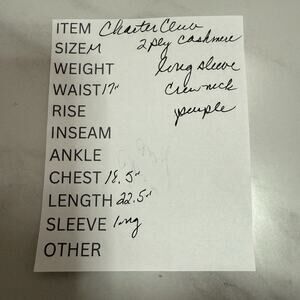 ITEM Charter Club
SIZE M 2 ply cashmere
WEIGHT long sleeve
WAIST 17" crew neck
RISE purple
INSEAM
ANKLE
CHEST 18.5"
LENGTH 22.5"
SLEEVE long
OTHER